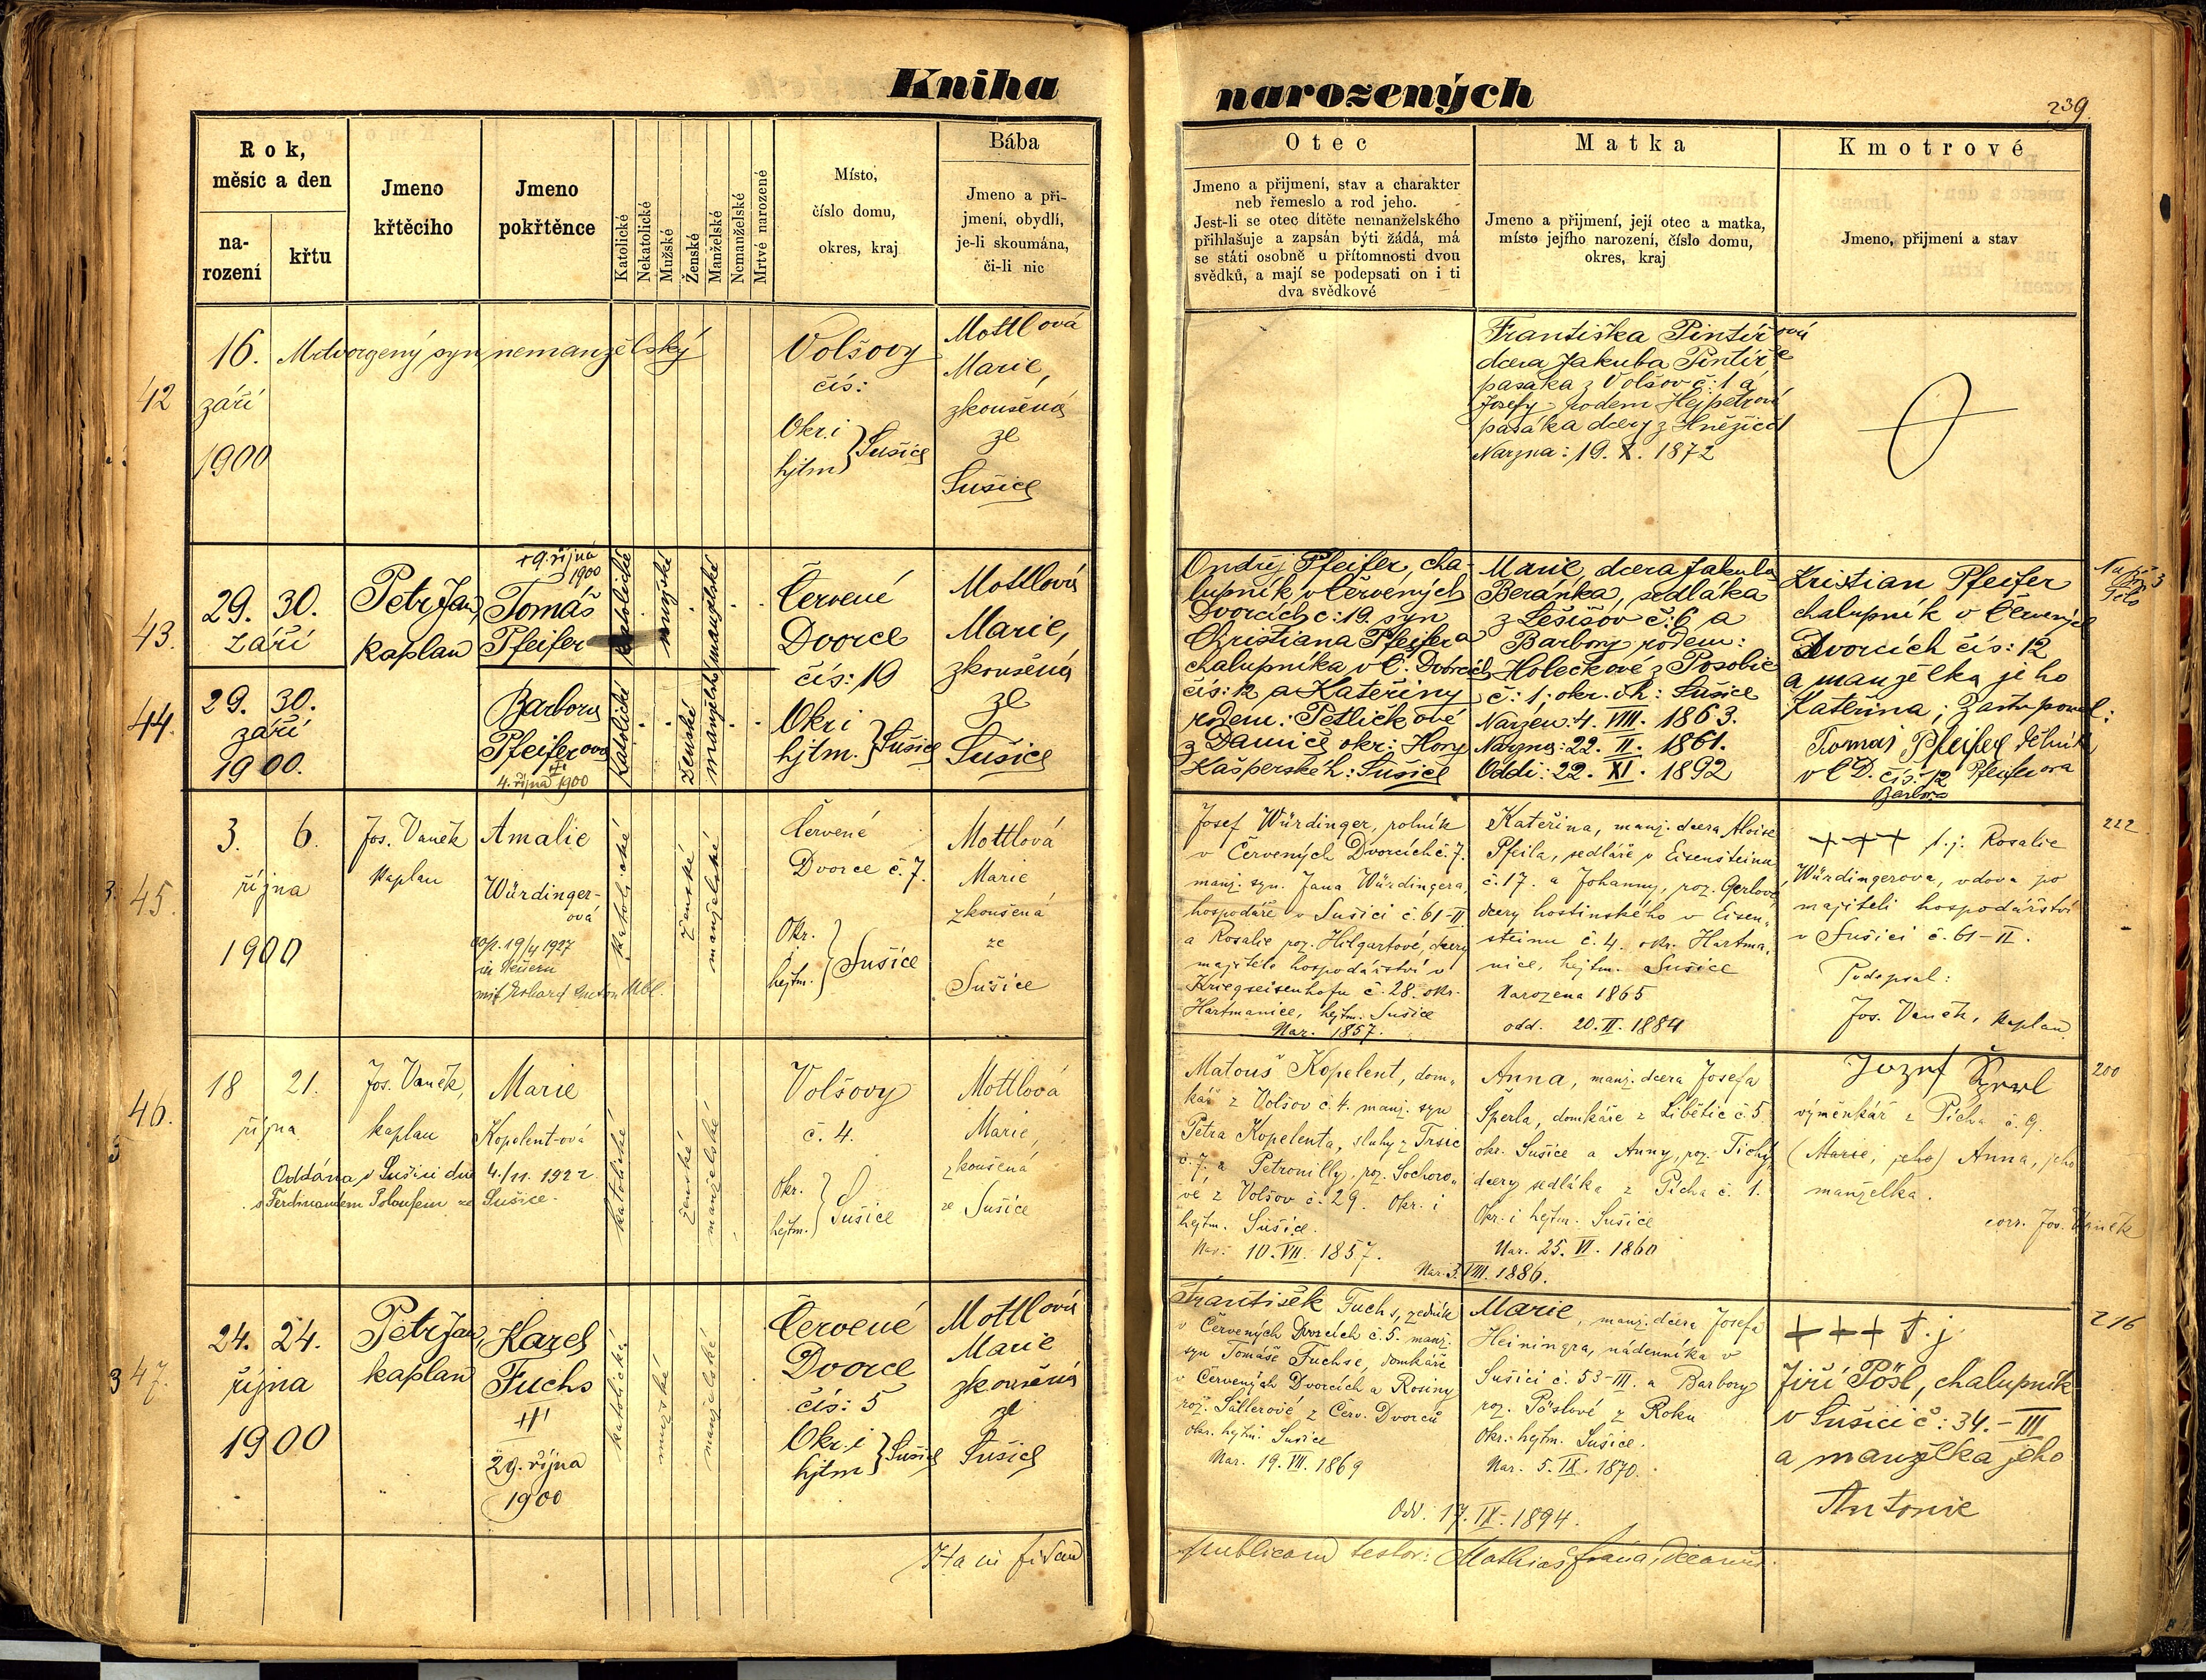 Kniha narozených
239.
Rok,
měsíc a den
na-
rození
křtu
Jmeno
křtěcího
Jmeno
pokřtěnce
Katolické
Nekatolické
Mužské
Ženské
Manželské
Nemanželské
Mrtvě narozené
Místo,
číslo domu,
okres, kraj
Bába
Jmeno a při-
jmení, obydlí,
je-li skoumána,
či-li nic
Otec
Jmeno a přijmení, stav a charakter
neb řemeslo a rod jeho.
Jest-li se otec dítěte nemanželského
přihlašuje a zapsán býti žádá, má
se státi osobně u přítomnosti dvou
svědků, a mají se podepsati on i ti
dva svědkové
Matka
Jmeno a přijmení, její otec a matka,
místo jejího narození, číslo domu,
okres, kraj
Kmotrové
Jmeno, přijmení a stav
42
16.
září
1900
syn nemanželský
Volšovy
čís:
Okr. i
hjtm } Sušice
Mottlová
Marie,
zkoušená
ze
Sušice
Františka Pintířová
dcera Jakuba Pintíře
pasáka z Volšov č: 1 a
Josefy rodem
pasáka dcery z
Narzna: 19. X. 1872
43.
29. 30.
září
Petr Jan,
kaplan
+9. října
1900
Tomáš
Pfeifer
katolické
mužské
manželské
Červené
Dvorce
čís: 19
Okr i
hjtm. } Sušice
Mottlová
Marie,
zkoušená
ze
Sušice
Ondřej Pfeifer, cha-
lupník v Červených
Dvorcích č: 19. syn
Christiana Pfeifera
chalupníka v Č. Dvorcích
čís: 12 a Kateřiny
rodem: Petličkové
z Damíč okr: Hory
Kašperské h: Sušice
Marie dcera Jakuba
Beránka, sedláka
z Lešišov č: 6 a
Barbory rodem:
Holečkové z Posobic
č: 1; okr. i h: Sušice
Narzen: 4. VIII. 1863.
Narzna: 22. II. 1861.
Oddi: 22. XI. 1892
Kristian Pfeifer
chalupník v Červených
Dvorcích čís: 12
a manželka jeho
Kateřina; Zastupoval:
Tomáš Pfeifer dělník
v Č D. čís: 12 Pfeiferova
Barbora
44.
29. 30.
září
1900.
Barbora
Pfeiferova
4. října 1900
Katolické
ženské
manželské
45.
3. 6.
října
1900
Jos. Vaněk
kaplan
Amalie
Würdinger-
ová
19/4 1927
in Neuern
katolické
ženské
manželské
Červené
Dvorce č. 7.
Okr.
i
hejtm. } Sušice
Mottlová
Marie
zkoušená
ze
Sušice
Josef Würdinger, rolník
v Červených Dvorcích č. 7.
manž. syn Jana Würdingera,
hospodáře v Sušici č. 61-II
a Rosalie roz. Hilgartové, dcery
majitele hospodářství v
Kriegseisenhofu č. 28. okr.
Hartmanice, hejtm. Sušice
Nar. 1857.
Kateřina, manž. dcera Aloise
Pfeila, sedláře v Eisensteinu
č. 17. a Johanny, roz. Gerlové,
dcery hostinského v Eisen-
steinu č. 4. okr. Hartma-
nice, hejtm. Sušice
Narozena 1865
odd. 20. II. 1884
+++ t. j. Rosalie
Würdingerova, vdova po
majiteli hospodářství
v Sušici č. 61-II.
Podepsal:
Jos. Vaněk, kaplan
222
46.
18 21.
října
Jos. Vaněk,
kaplan
Marie
Kopelent-ová
Oddána v Sušici dne 4./11. 1922
s Ferdinandem ze Sušice.
katolické
ženské
manželské
Volšovy
č. 4.
Okr.
i
hejtm. } Sušice
Mottlová
Marie,
zkoušená
ze Sušice
Matouš Kopelent, dom-
kář z Volšov č. 4. manž. syn
Petra Kopelenta, sluhy z Trsic
č. 7. a Petronilly, roz. Sochoro-
vé z Volšov č. 29. Okr. i
hejtm. Sušice.
Nar. 10. VII. 1857.
Anna, manž. dcera Josefa
Šperla, domkáře z Libětic č. 5
okr. Sušice a Anny, roz. Tichý,
dcery sedláka z Pícha č. 1.
Okr. i hejtm. Sušice
Nar. 25. VI. 1860
3. VIII. 1886.
výměnkář z Pícha č. 9.
(Marie, jeho) Anna, jeho
manželka.
corr. Jos. Vaněk
200
47.
24. 24.
října
1900
Petr Jan,
kaplan
Karel
Fuchs
29. října
1900
katolické
mužské
manželské
Červené
Dvorce
čís: 5
Okr. i
hjtm } Sušice
Mottlová
Marie
zkoušená
ze
Sušice
František Fuchs, zedník
v Červených Dvorcích č. 5. manž.
syn Tomáše Fuchse, domkáře
v Červených Dvorcích a Rosiny
roz. Sallerové z Červ. Dvorců
okr. hejtm. Sušice
Nar. 19. VII. 1869
Marie, manž. dcera Josefa
Heiningra, nádenníka v
Sušici č. 53-III. a Barbory
roz. Pöslové z Roku
Okr. hejtm. Sušice.
Nar. 5. IX. 1870.
Odd. 17. IX. 1894.
+++ t. j.
Jiří Pösl, chalupník
v Sušici č: 34.-III
a manželka jeho
Antonie
216
Ita in fidem
publicam testor: Mathias decanus.